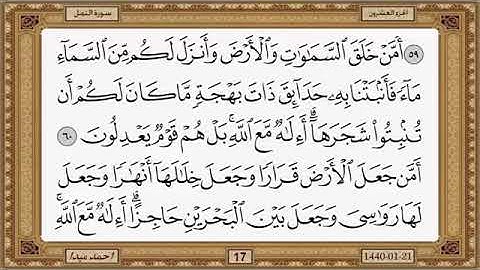 الجزء العشرون
سورة النمل
٥٩ أَمَّنْ خَلَقَ السَّمَٰوَٰتِ وَالْأَرْضَ وَأَنزَلَ لَكُم مِّنَ السَّمَآءِ
مَآءً فَأَنۢبَتْنَا بِهِۦ حَدَآئِقَ ذَاتَ بَهْجَةٍ مَّا كَانَ لَكُمْ أَن
تُنۢبِتُوا۟ شَجَرَهَآ ۗ أَءِلَٰهٌ مَّعَ اللَّهِ ۚ بَلْ هُمْ قَوْمٌ يَعْدِلُونَ ٦٠
أَمَّن جَعَلَ الْأَرْضَ قَرَارًا وَجَعَلَ خِلَٰلَهَآ أَنْهَٰرًا وَجَعَلَ
لَهَا رَوَٰسِىَ وَجَعَلَ بَيْنَ الْبَحْرَيْنِ حَاجِزًا ۗ أَءِلَٰهٌ مَّعَ اللَّهِ ۚ
1440-01-21
17